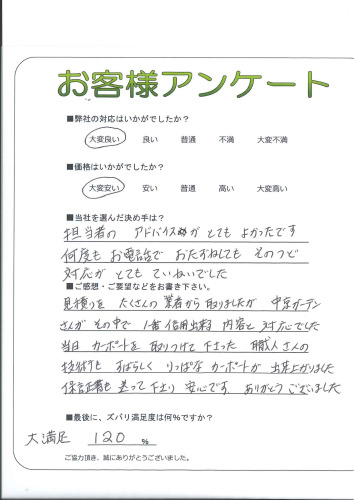 お客様アンケート
■弊社の対応はいかがでしたか?
大変良い 良い 普通 不満 大変不満
■価格はいかがでしたか?
大変安い 安い 普通 高い 大変高い
■当社を選んだ決め手は?
担当者の アドバイスが とても よかったです
何度も お電話で おたずねしても そのつど
対応が とても ていねいでした
■ご感想・ご要望などをお書き下さい。
見積りを たくさんの 業者から 取りましたが 中京ガーデン
さんが その中で 1番 信用出来る 内容と 対応でした
当日 カーポートを 取りつけて 下さった 職人さんの
技術も すばらしく りっぱな カーポートが 出来上がりました
保証書も 送って下さり 安心です ありがとう ございました
■最後に、ズバリ満足度は何%ですか?
大満足 120 %
ご協力頂き、誠にありがとうございました。